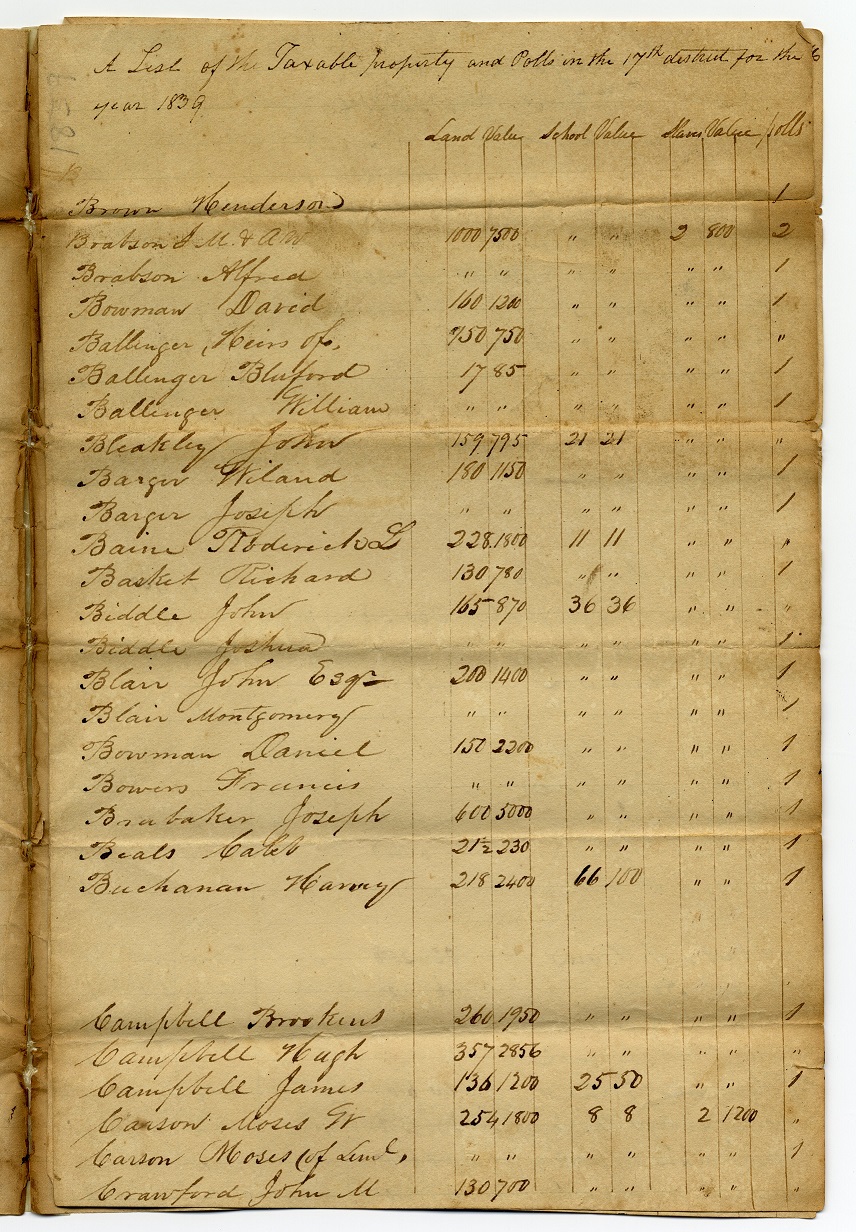 A List of the Taxable property and Polls in the 17th district for the
year 1839
1839
Land Value School Value Slaves Value polls
B
Brown Henderson 1
Brabson J M. & A W 1000 7500 " " 2 800 2
Brabson Alfred " " " " " " 1
Bowman David 160 1200 " " " " 1
Ballinger, Heirs of, 750 750 " " " " "
Ballinger Bluford 17 85 " " " " 1
Ballinger William " " " " " " 1
Bleakley John 159 795 21 21 " " "
Barger Wiland 180 1150 " " " " 1
Barger Joseph " " " " " " 1
Baine Roderick L 228 1800 11 11 " " "
Basket Richard 130 780 " " " " 1
Biddle John 165 870 36 36 " " "
Biddle Joshua " " " " " " 1
Blair John Esqr 200 1400 " " " " 1
Blair Montgomery " " " " " " 1
Bowman Daniel 150 2200 " " " " 1
Bowers Francis " " " " " " 1
Brubaker Joseph 600 5000 " " " " 1
Beals Caleb 21½ 230 " " " " 1
Buchanan Harvey 218 2400 66 100 " " 1
" "
" " "
Campbell Brookins 260 1950 " " " " 1
Campbell Hugh 357 2856 " " " " "
Campbell James 136 1200 25 50 " " 1
Carson Moses W 254 1800 8 8 2 1200 "
Carson Moses (of " " " " " " 1
Crawford John M 130 700 " " " " "